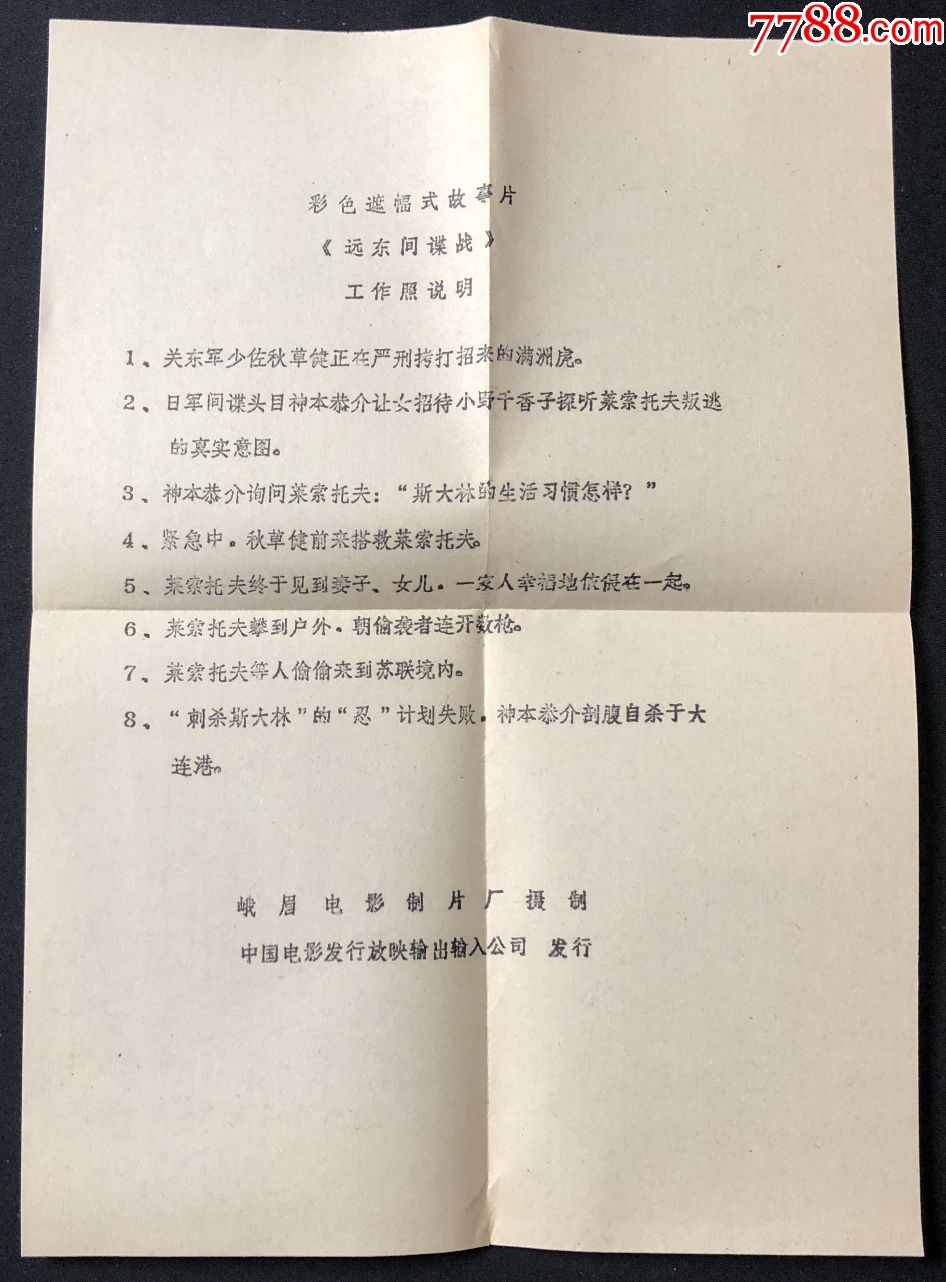 7788.com
彩色遮幅式故事片
《远东间谍战》
工作照说明
1、关东军少佐秋草健正在严刑拷打招来的满洲虎。
2、日军间谍头目神本恭介让女招待小野千香子探听莱索托夫叛逃
的真实意图。
3、神本恭介询问莱索托夫：“斯大林的生活习惯怎样？”
4、紧急中，秋草健前来搭救莱索托夫。
5、莱索托夫终于见到妻子、女儿，一家人幸福地依偎在一起。
6、莱索托夫攀到户外，朝偷袭者连开数枪。
7、莱索托夫等人偷偷来到苏联境内。
8、“刺杀斯大林”的“忍”计划失败，神本恭介剖腹自杀于大
连港。
峨眉电影制片厂摄制
中国电影发行放映输出输入公司 发行